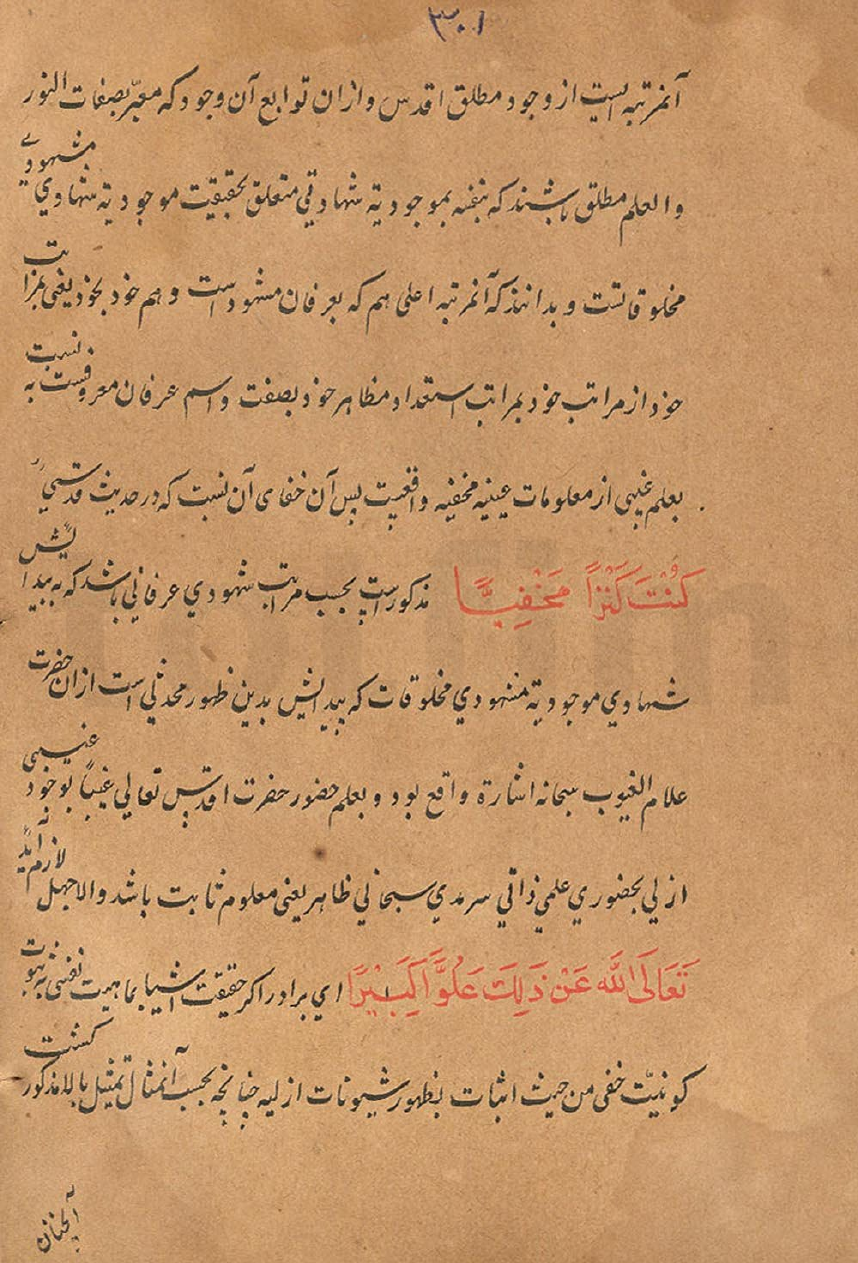 ۳۰۱
آنمرتبه ایست از وجود مطلق اقدس و ازان توابع آن وجود که معبّر بصفات النور
والعلم مطلق باشند که بنفسه بموجودیة شهادتی متعلق بحقیقت موجودیة شهادي مشهودي
مخلوقاتست و بدانند که آنمرتبه اعلی هم که بعرفان مشهود است و هم خود بخود یعنی بمراتب
خود از مراتب خود بمراتب استعداد مظاهر خود بصفت و اسم عرفان معروفست نسبت به
بعلم غیبی از معلومات عینیه مخفیه واقعیت پس آن خفای آن نسبت که در حدیث قدسی
كُنْتُ كَنْزاً مَخْفِيًّا مذکور است بحسب مراتب شهودي عرفانی باشد که به پیدایش
شهادي موجودیة مشهودي مخلوقات که پیدایش بدین ظهور محدثی است ازان حضرت
علام الغیوب سبحانه اشارة واقع بود و بعلم حضور حضرت اقدس تعالی غیباً بوجود غیبی
ازلي بحضوري علمی ذاتی سرمدي سبحانی ظاهر یعنی معلوم ثابت باشد والا جهل لازم آید
تَعَالَى اللَّه عَنْ ذَلِكَ عَلُوًّا كَبِيْرًا اي برادر اگر حقیقت اشیا بماهیت نفسی به ثبوت
کونیّت خفی من حیث اثبات بظهور شیونات ازلیه چنانچه بحسب آنمثال تمثیل بالا مذکور گشت
آنچنان